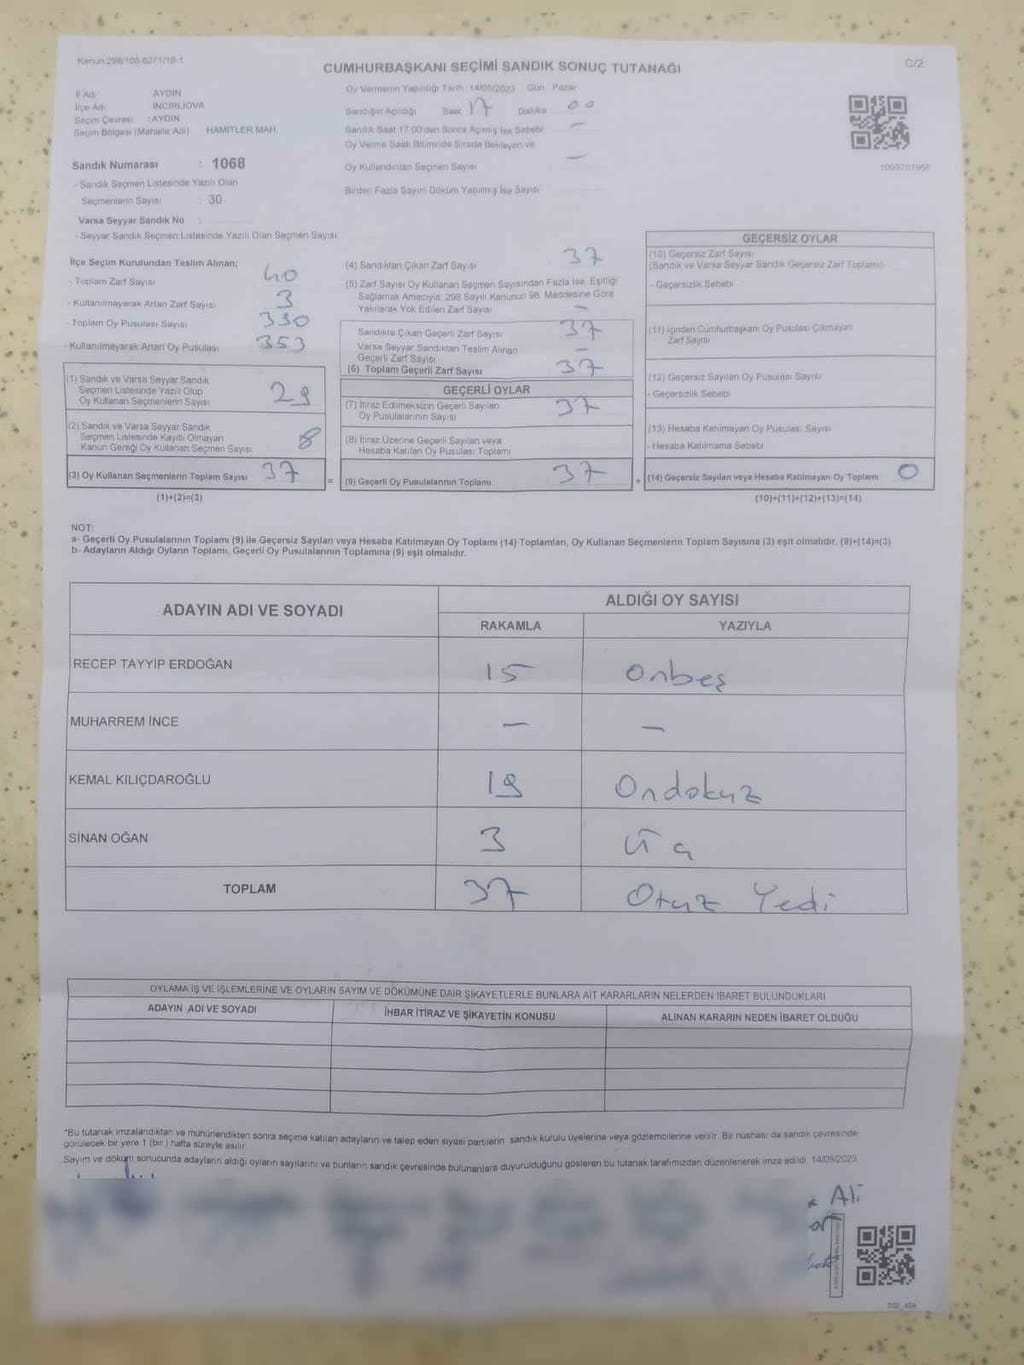 Kanun:298/105,6271/18-1
CUMHURBAŞKANI SEÇİMİ SANDIK SONUÇ TUTANAĞI
C/2
İl Adı : AYDIN
İlçe Adı : İNCİRLİOVA
Seçim Çevresi : AYDIN
Seçim Bölgesi (Mahalle Adı) HAMİTLER MAH.
Sandık Numarası : 1068
- Sandık Seçmen Listesinde Yazılı Olan
Seçmenlerin Sayısı : 30
Varsa Seyyar Sandık No :
- Seyyar Sandık Seçmen Listesinde Yazılı Olan Seçmen Sayısı
Oy Vermenin Yapıldığı Tarih :14/05/2023 Gün : Pazar
Sandığın Açıldığı Saat 17 Dakika 00
Sandık Saat 17.00'den Sonra Açılmış İse Sebebi —
Oy Verme Saati Bitiminde Sırada Bekleyen ve
Oy Kullandırılan Seçmen Sayısı —
Birden Fazla Sayım Döküm Yapılmış İse Sayısı
İlçe Seçim Kurulundan Teslim Alınan;
- Toplam Zarf Sayısı 40
- Kullanılmayarak Artan Zarf Sayısı 3
- Toplam Oy Pusulası Sayısı
- Kullanılmayarak Artan Oy Pusulası 353
(1) Sandık ve Varsa Seyyar Sandık
Seçmen Listesinde Yazılı Olup
Oy Kullanan Seçmenlerin Sayısı 29
(2) Sandık ve Varsa Seyyar Sandık
Seçmen Listesinde Kayıtlı Olmayan
Kanun Gereği Oy Kullanan Seçmen Sayısı 8
(3) Oy Kullanan Seçmenlerin Toplam Sayısı 37
(1)+(2)=(3)
(4) Sandıktan Çıkan Zarf Sayısı 37
(5) Zarf Sayısı Oy Kullanan Seçmen Sayısından Fazla İse, Eşitliği
Sağlamak Amacıyla, 298 Sayılı Kanunun 98. Maddesine Göre
Yakılarak Yok Edilen Zarf Sayısı —
Sandıkta Çıkan Geçerli Zarf Sayısı 37
Varsa Seyyar Sandıktan Teslim Alınan
Geçerli Zarf Sayısı —
(6) Toplam Geçerli Zarf Sayısı 37
GEÇERLİ OYLAR
(7) İtiraz Edilmeksizin Geçerli Sayılan
Oy Pusulalarının Sayısı 37
(8) İtiraz Üzerine Geçerli Sayılan veya
Hesaba Katılan Oy Pusulası Toplamı
= (9) Geçerli Oy Pusulalarının Toplamı 37
GEÇERSİZ OYLAR
(10) Geçersiz Zarf Sayısı
(Sandık ve Varsa Seyyar Sandık Geçersiz Zarf Toplamı)
- Geçersizlik Sebebi
(11) İçinden Cumhurbaşkanı Oy Pusulası Çıkmayan
Zarf Sayısı
(12) Geçersiz Sayılan Oy Pusulası Sayısı
- Geçersizlik Sebebi
(13) Hesaba Katılmayan Oy Pusulası Sayısı
- Hesaba Katılmama Sebebi
+ (14) Geçersiz Sayılan veya Hesaba Katılmayan Oy Toplamı 0
(10)+(11)+(12)+(13)=(14)
NOT:
a- Geçerli Oy Pusulalarının Toplamı (9) ile Geçersiz Sayılan veya Hesaba Katılmayan Oy Toplamı (14) Toplamları, Oy Kullanan Seçmenlerin Toplam Sayısına (3) eşit olmalıdır. (9)+(14)=(3)
b- Adayların Aldığı Oyların Toplamı, Geçerli Oy Pusulalarının Toplamına (9) eşit olmalıdır.
ADAYIN ADI VE SOYADI
ALDIĞI OY SAYISI
RAKAMLA YAZIYLA
RECEP TAYYİP ERDOĞAN 15 Onbeş
MUHARREM İNCE — —
KEMAL KILIÇDAROĞLU 19 Ondokuz
SİNAN OĞAN 3 Üç
TOPLAM 37 Otuz Yedi
OYLAMA İŞ VE İŞLEMLERİNE VE OYLARIN SAYIM VE DÖKÜMÜNE DAİR ŞİKAYETLERLE BUNLARA AİT KARARLARIN NELERDEN İBARET BULUNDUKLARI
ADAYIN ADI VE SOYADI İHBAR İTİRAZ VE ŞİKAYETİN KONUSU ALINAN KARARIN NEDEN İBARET OLDUĞU
*Bu tutanak imzalandıktan ve mühürlendikten sonra seçime katılan adayların ve talep eden siyasi partilerin sandık kurulu üyelerine veya gözlemcilerine verilir. Bir nüshası da sandık çevresinde
görülecek bir yere 1 (bir ) hafta süreyle asılır.
Sayım ve döküm sonucunda adayların aldığı oyların sayılarını ve bunların sandık çevresinde bulunanlara duyurulduğunu gösteren bu tutanak tarafımızdan düzenlenerek imza edildi. 14/05/2023
Ali